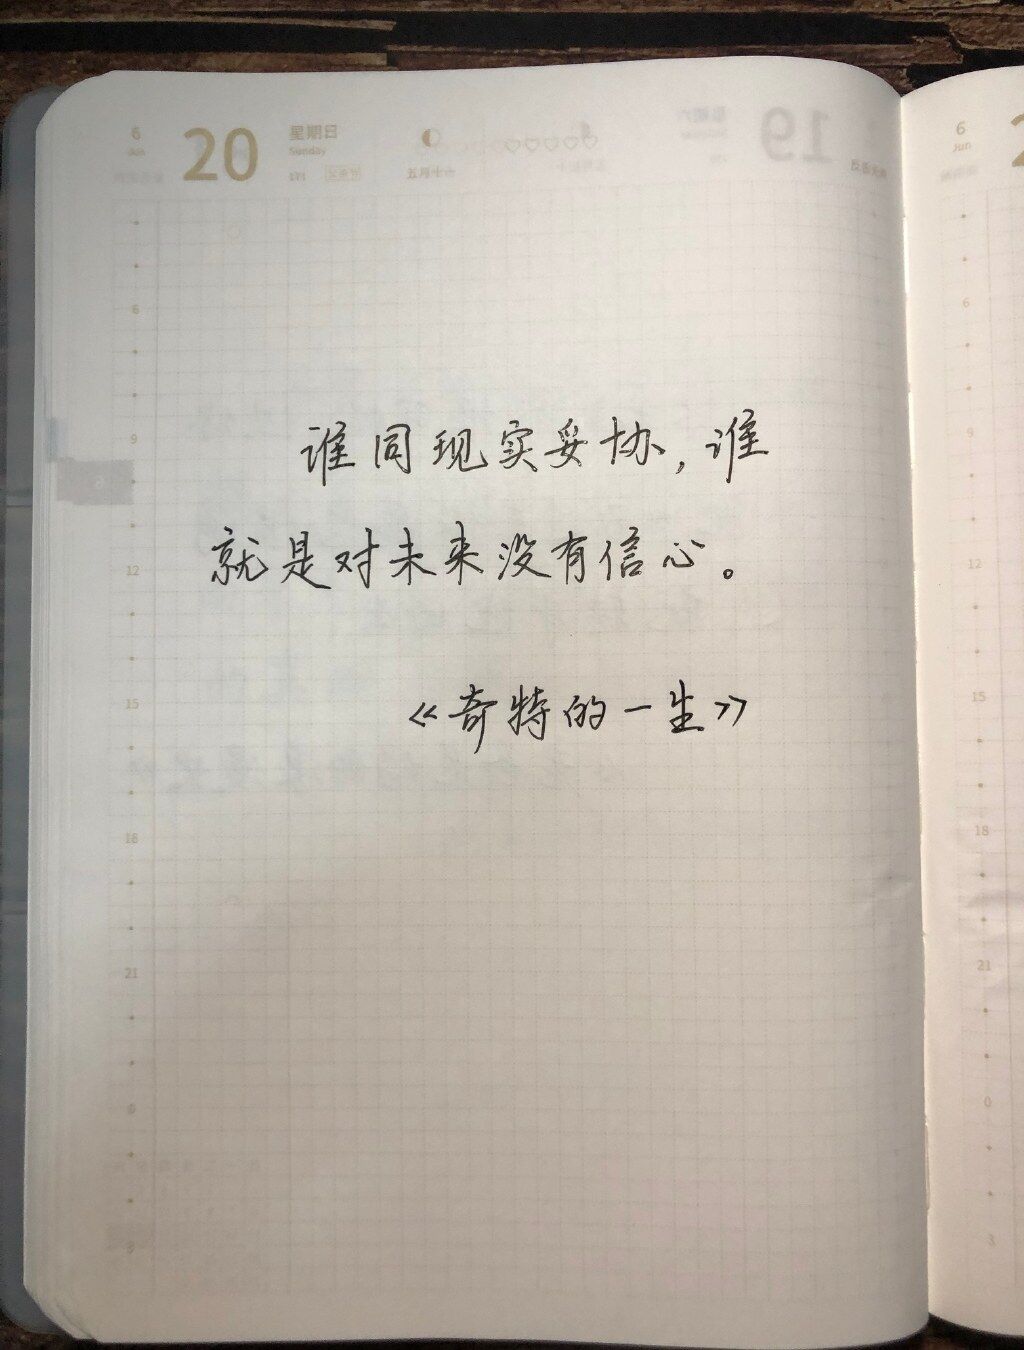 6
Jun
20
星期日
Sunday
171
父亲节
五月十一
谁同现实妥协,谁
就是对未来没有信心。
《奇特的一生》
6
9
12
15
18
21
0
3
6
Jun
6
9
12
15
18
21
0
3